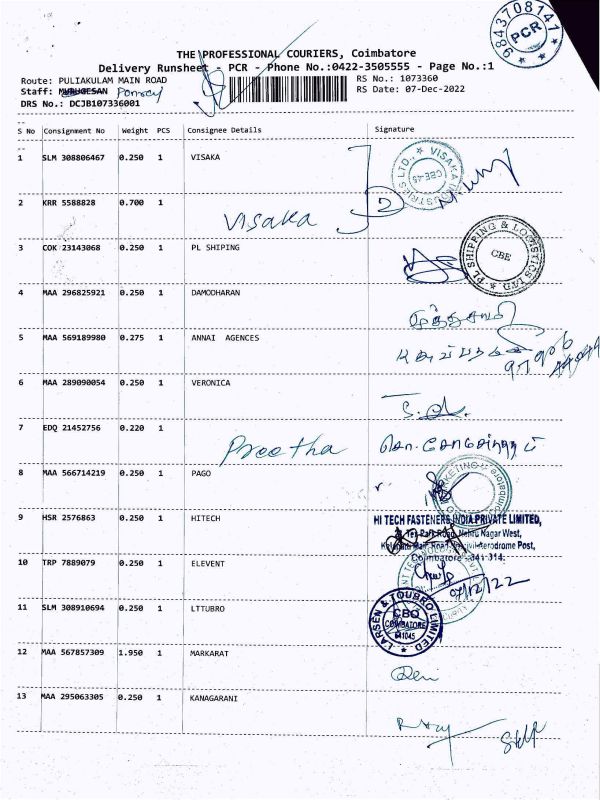 9843708141
PCR
THE PROFESSIONAL COURIERS, Coimbatore
Delivery Runsheet - PCR - Phone No.:0422-3505555 - Page No.:1
Route: PULIAKULAM MAIN ROAD
RS No.: 1073360
Staff: MURUGESAN
RS Date: 07-Dec-2022
DRS No.: DCJB107336001
S No Consignment No Weight PCS Consignee Details Signature
1 SLM 308806467 0.250 1 VISAKA
VISAKA INDUSTRIES LTD., CBE-45
2 KRR 5588828 0.700 1 Visaka 2
3 COK 23143068 0.250 1 PL SHIPING
PL SHIPPING & LOGISTICS LTD CBE
4 MAA 296825921 0.250 1 DAMODHARAN
5 MAA 569189980 0.275 1 ANNAI AGENCES
6 MAA 289090054 0.250 1 VERONICA
7 EDQ 21452756 0.220 1 Preetha
8 MAA 566714219 0.250 1 PAGO
MARKETING Coimbatore
9 HSR 2576863 0.250 1 HITECH
HI TECH FASTENERS INDIA PRIVATE LIMITED,
Nehru Nagar West,
Main Road, Civil Aerodrome Post,
Coimbatore - 641 014.
10 TRP 7889079 0.250 1 ELEVENT
07/12/22
11 SLM 308910694 0.250 1 LTTUBRO
LARSEN & TOUBRO LIMITED CBO COIMBATORE 641045
12 MAA 567857309 1.950 1 MARKARAT
13 MAA 295063305 0.250 1 KANAGARANI